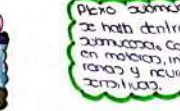 Plexo submuco
se halla dentro
submucosa. Co
en motoras, in
ronas y neuro
sensitivas.